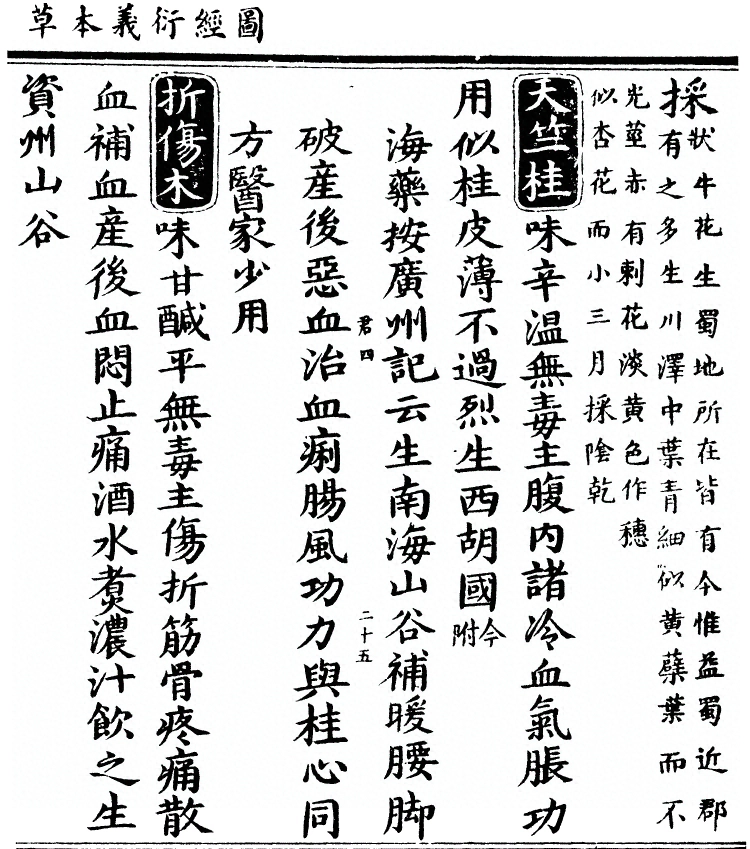 圖經衍義本草
採
狀牛花生蜀地所在皆有今惟益蜀近郡
有之多生川澤中葉青細似黃蘗葉而不
光莖赤有刺花淡黃色作穗
似杏花而小三月採陰乾
天竺桂味辛温無毒主腹内諸冷血氣脹功
用似桂皮薄不過烈生西胡國今附
海藥按廣州記云生南海山谷補暖腰脚
君四 二十五
破産後惡血治血痢腸風功力與桂心同
方醫家少用
折傷木味甘醎平無毒主傷折筋骨疼痛散
血補血産後血悶止痛酒水煑濃汁飲之生
資州山谷